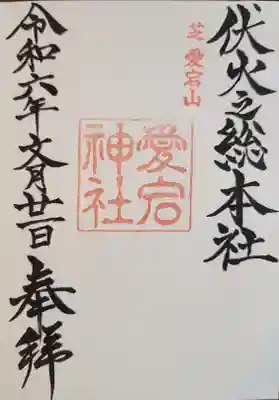 伏火之総本社
芝 愛宕山
愛宕
神社
令和六年文月廿一日
奉拝